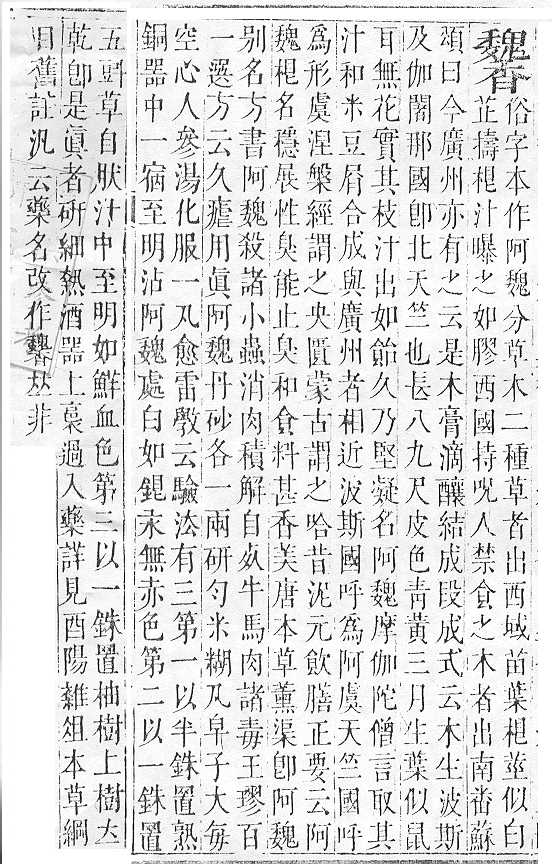 俗字本作阿魏分草木二種草者出西域苗葉根莖似白
芷擣根汁曝之如膠西國持呪人禁食之木者出南畨蘇
頌曰今廣州亦有之云是木膏滴釀結成段成式云木生波斯
及伽闍那國卽北天竺也長八九尺皮色靑黃三月生葉似鼠
耳無花實其枝汁出如飴久乃堅凝名阿魏摩伽陀僧言取其
汁和米豆屑合成與廣州者相近波斯國呼爲阿虞天竺國呼
爲形虞涅槃經謂之央匱蒙古謂之哈昔泥元飲膳正要云阿
魏根名穩展性臭能止臭和食料甚香美唐本草薰渠卽阿魏
别名方書阿魏殺諸小蟲消肉積解自死牛馬肉諸毒王璆百
一選方云久瘧用眞阿魏丹砂各一兩研勻米糊丸皁子大每
空心人參湯化服一丸愈雷斆云驗法有三第一以半銖置熟
銅器中一宿至明沾阿魏處白如銀永無赤色第二以一銖置
五㪷草自肰汁中至明如鮮血色第三以一銖置柚樹上樹立
乾卽是眞者硏細熱酒器上裛過入藥詳見酉陽雜俎本草綱
目舊註汎云藥名改作𠀤非